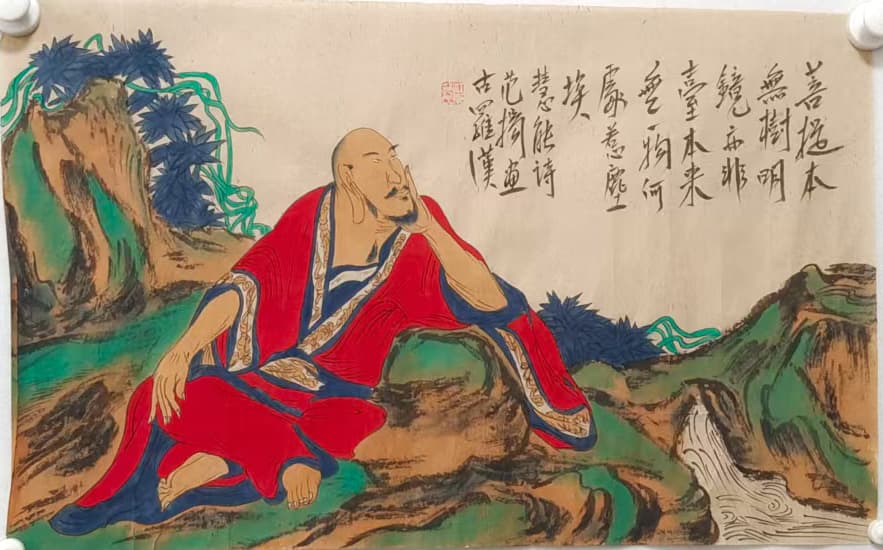 菩提本
無樹明
鏡亦非
臺本來
無一物何
處惹塵
埃
慧能詩
范畫
古羅漢